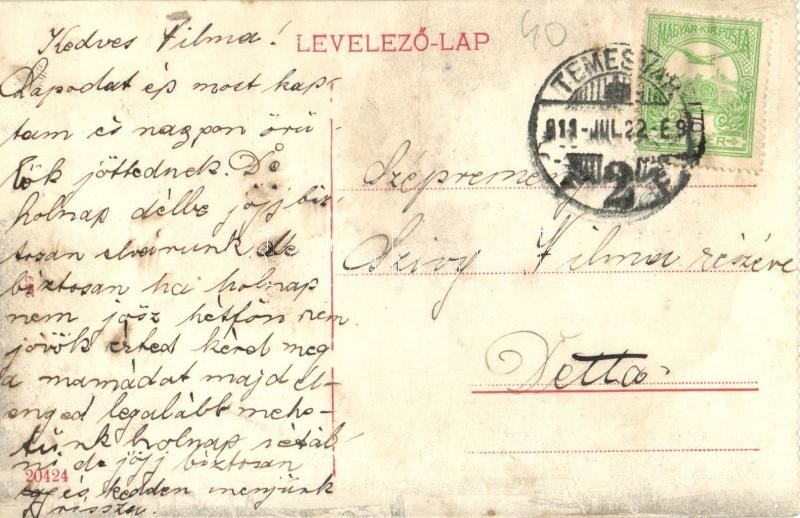 Kedves Vilma!
Lapodat ép most kap-
tam és nagyon örü-
lök jöttednek. De
holnap délbe jőjj biz-
tosan elvárunk de
biztosan ha holnap
nem jösz hétfőn nem
jövök érted kérd meg
a mamádat majd el-
enged legalább mehe-
tünk holnap sétál
ni de jőjj biztosan
és kedden menjünk
vissza.
LEVELEZŐ-LAP
40
MAGYAR KIR. POSTA
TEMESVÁR
911-JUL.22-E8
2
Szivy Vilma részére
Detta
20424